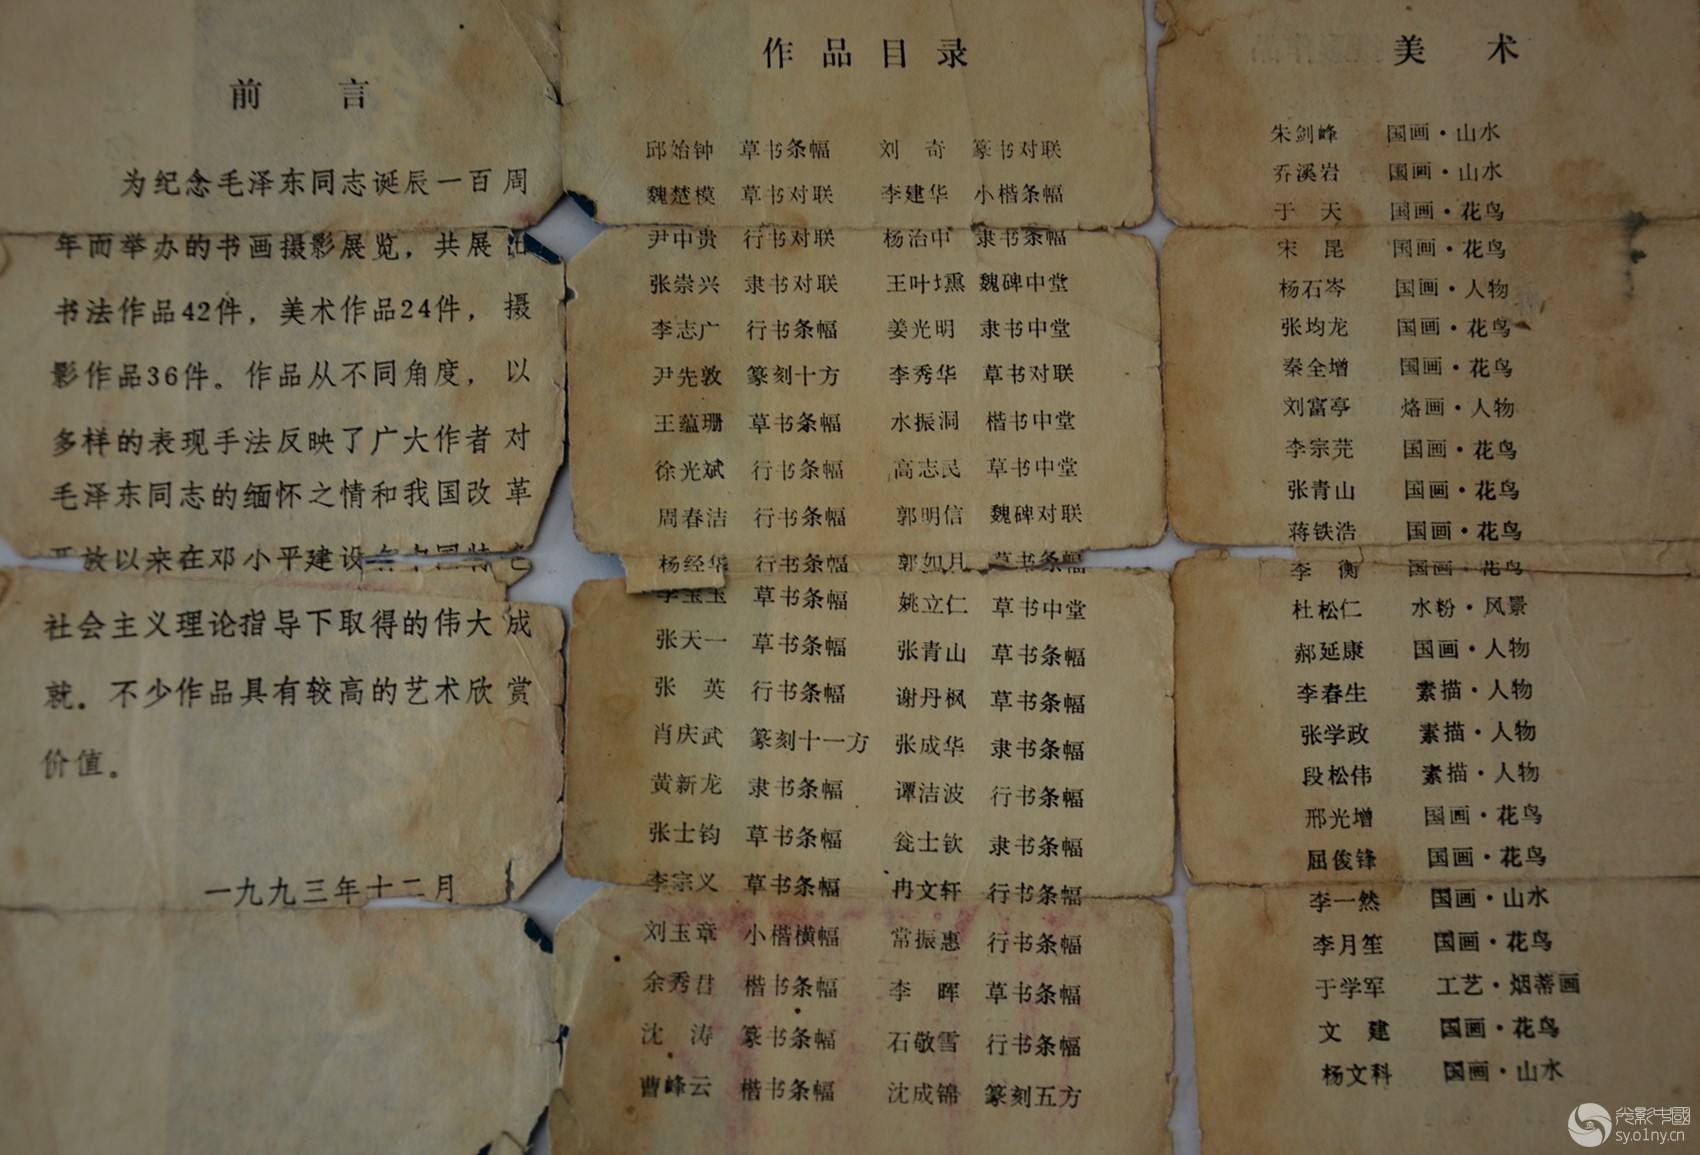 前 言
为纪念毛泽东同志诞辰一百周
年而举办的书画摄影展览，共展出
书法作品42件，美术作品24件，摄
影作品36件。作品从不同角度，以
多样的表现手法反映了广大作者对
毛泽东同志的缅怀之情和我国改革
开放以来在邓小平建设有中国特色
社会主义理论指导下取得的伟大成
就。不少作品具有较高的艺术欣赏
价值。
一九九三年十二月
作品目录
邱始钟 草书条幅 刘 奇 篆书对联
魏楚模 草书对联 李建华 小楷条幅
尹中贵 行书对联 杨治中 隶书条幅
张崇兴 隶书对联 王叶壎 魏碑中堂
李志广 行书条幅 姜光明 隶书中堂
尹先敦 篆刻十方 李秀华 草书对联
王蕴珊 草书条幅 水振洞 楷书中堂
徐光斌 行书条幅 高志民 草书中堂
周春洁 行书条幅 郭明信 魏碑对联
杨经华 行书条幅 郭如月 草书条幅
李玉玉 草书条幅 姚立仁 草书中堂
张天一 草书条幅 张青山 草书条幅
张 英 行书条幅 谢丹枫 草书条幅
肖庆武 篆刻十一方 张成华 隶书条幅
黄新龙 隶书条幅 谭洁波 行书条幅
张士钧 草书条幅 瓮士钦 隶书条幅
李宗义 草书条幅 冉文轩 行书条幅
刘玉章 小楷横幅 常振惠 行书条幅
余秀君 楷书条幅 李 晖 草书条幅
沈 涛 篆书条幅 石敬雪 行书条幅
曹峰云 楷书条幅 沈成锦 篆刻五方
美 术
朱剑峰 国画·山水
乔溪岩 国画·山水
于 天 国画·花鸟
宋 昆 国画·花鸟
杨石岑 国画·人物
张均龙 国画·花鸟
秦全增 国画·花鸟
刘富亭 烙画·人物
李宗芫 国画·花鸟
张青山 国画·花鸟
蒋铁浩 国画·花鸟
李 衡 国画·花鸟
杜松仁 水粉·风景
郝延康 国画·人物
李春生 素描·人物
张学政 素描·人物
段松伟 素描·人物
邢光增 国画·花鸟
屈俊锋 国画·花鸟
李一然 国画·山水
李月笙 国画·花鸟
于学军 工艺·烟蒂画
文 建 国画·花鸟
杨文科 国画·山水
光影中國
sy.o1ny.cn